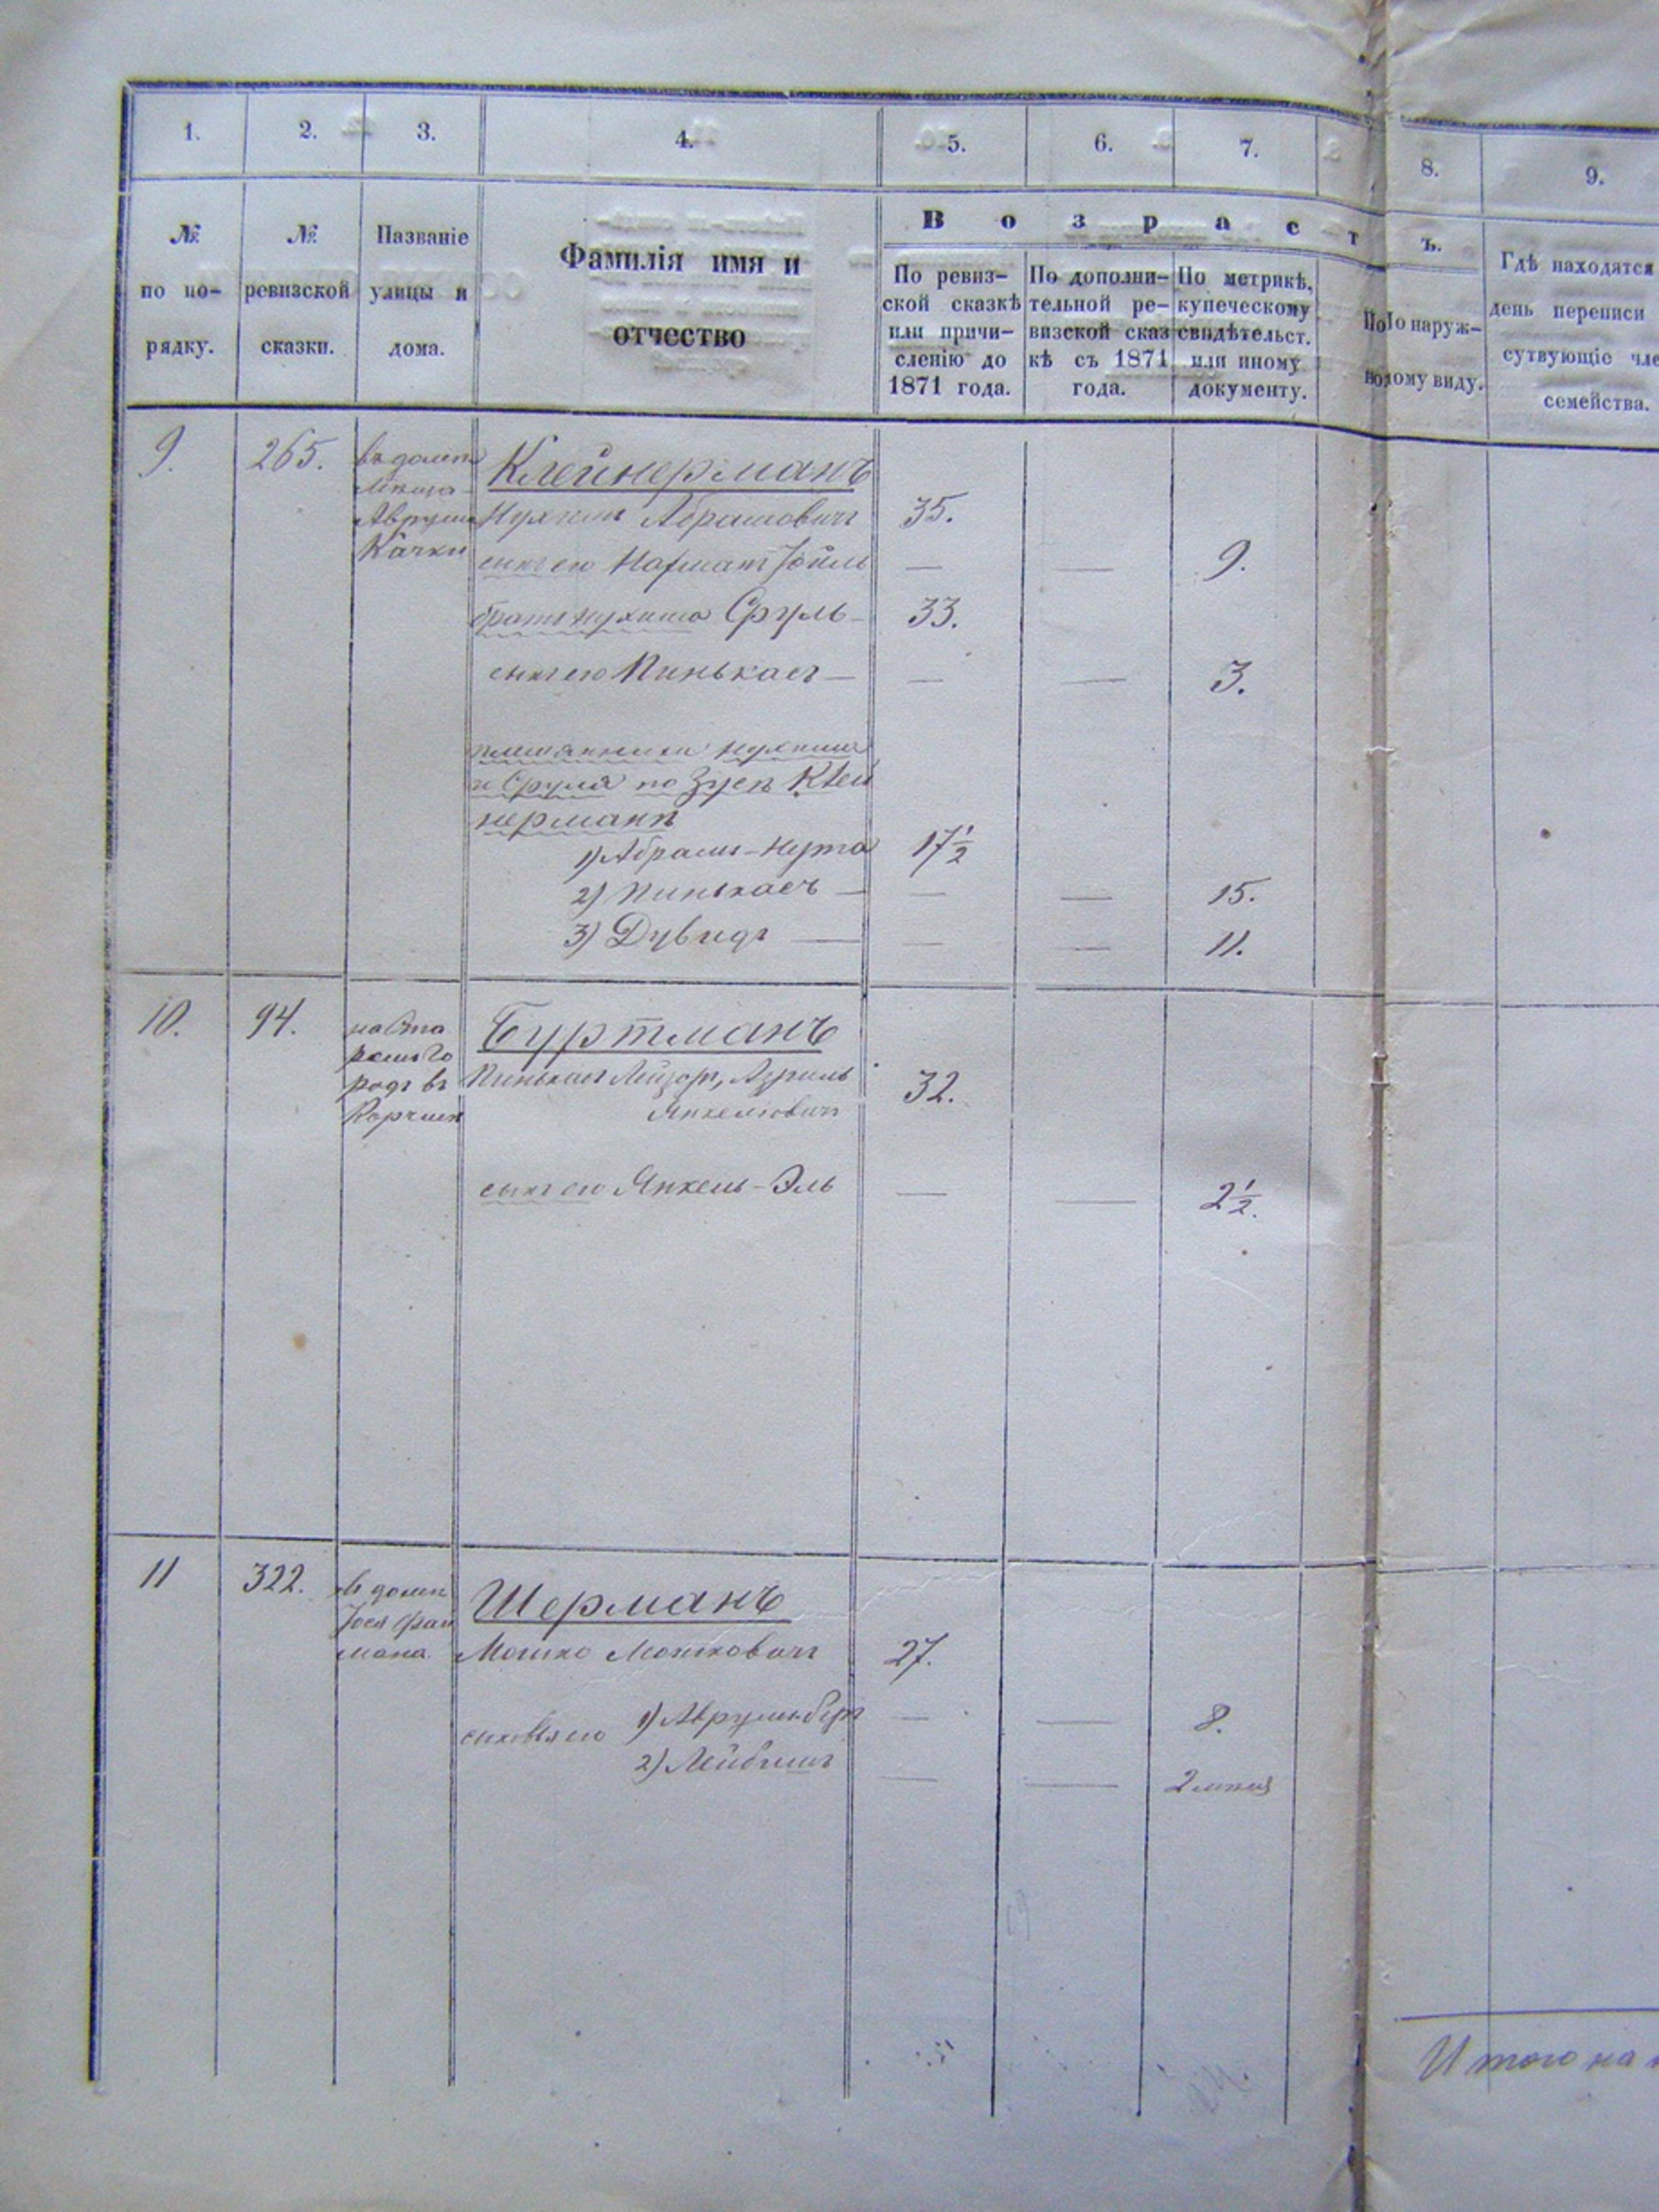 1. 2. 3. 4. 5. 6. 7. 8. 9.
№ по по-рядку.
№ ревизской сказки.
Названіе улицы и дома.
Фамилія имя и отчество
В о з р а с т ъ.
По ревиз-
ской сказкѣ
или причи-
сленію до
1871 года.
По дополни-
тельной ре-
визской сказ
кѣ съ 1871
года.
По метрикѣ,
купеческому
свидѣтельст.
или иному
документу.
По наруж-
ному виду.
Гдѣ находятся
день переписи
сутвующіе чле
семейства.
9. 265. въ домѣ Клейнерманъ
Аврума Нухимъ Абрамовичъ 35.
Качки
сынъ его Йойль — — 9.
братъ Нухима Сруль — 33.
сынъ его Пинькасъ — — — 3.
племянники Нухима
и Сруля по Зусѣ Клей
нерманъ
1) Абрамъ-Нута 17 1/2
2) Пинькасъ — — — 15.
3) Дувидъ — — — 11.
10. 94. на Ста Буртманъ
ромъ Го
родѣ въ Пинькасъ Лейзоръ, Азриль 32.
Янкелювичъ
сынъ его Янкель-Эль — — 2 1/2.
11 322. въ домѣ Шерманъ
Іося Фай
мана. Мошко Мошковичъ 27.
сыновья его 1) Аврумъ-Беръ — — 8.
2) Лейбишъ — — 2 мѣсяц
Итого на